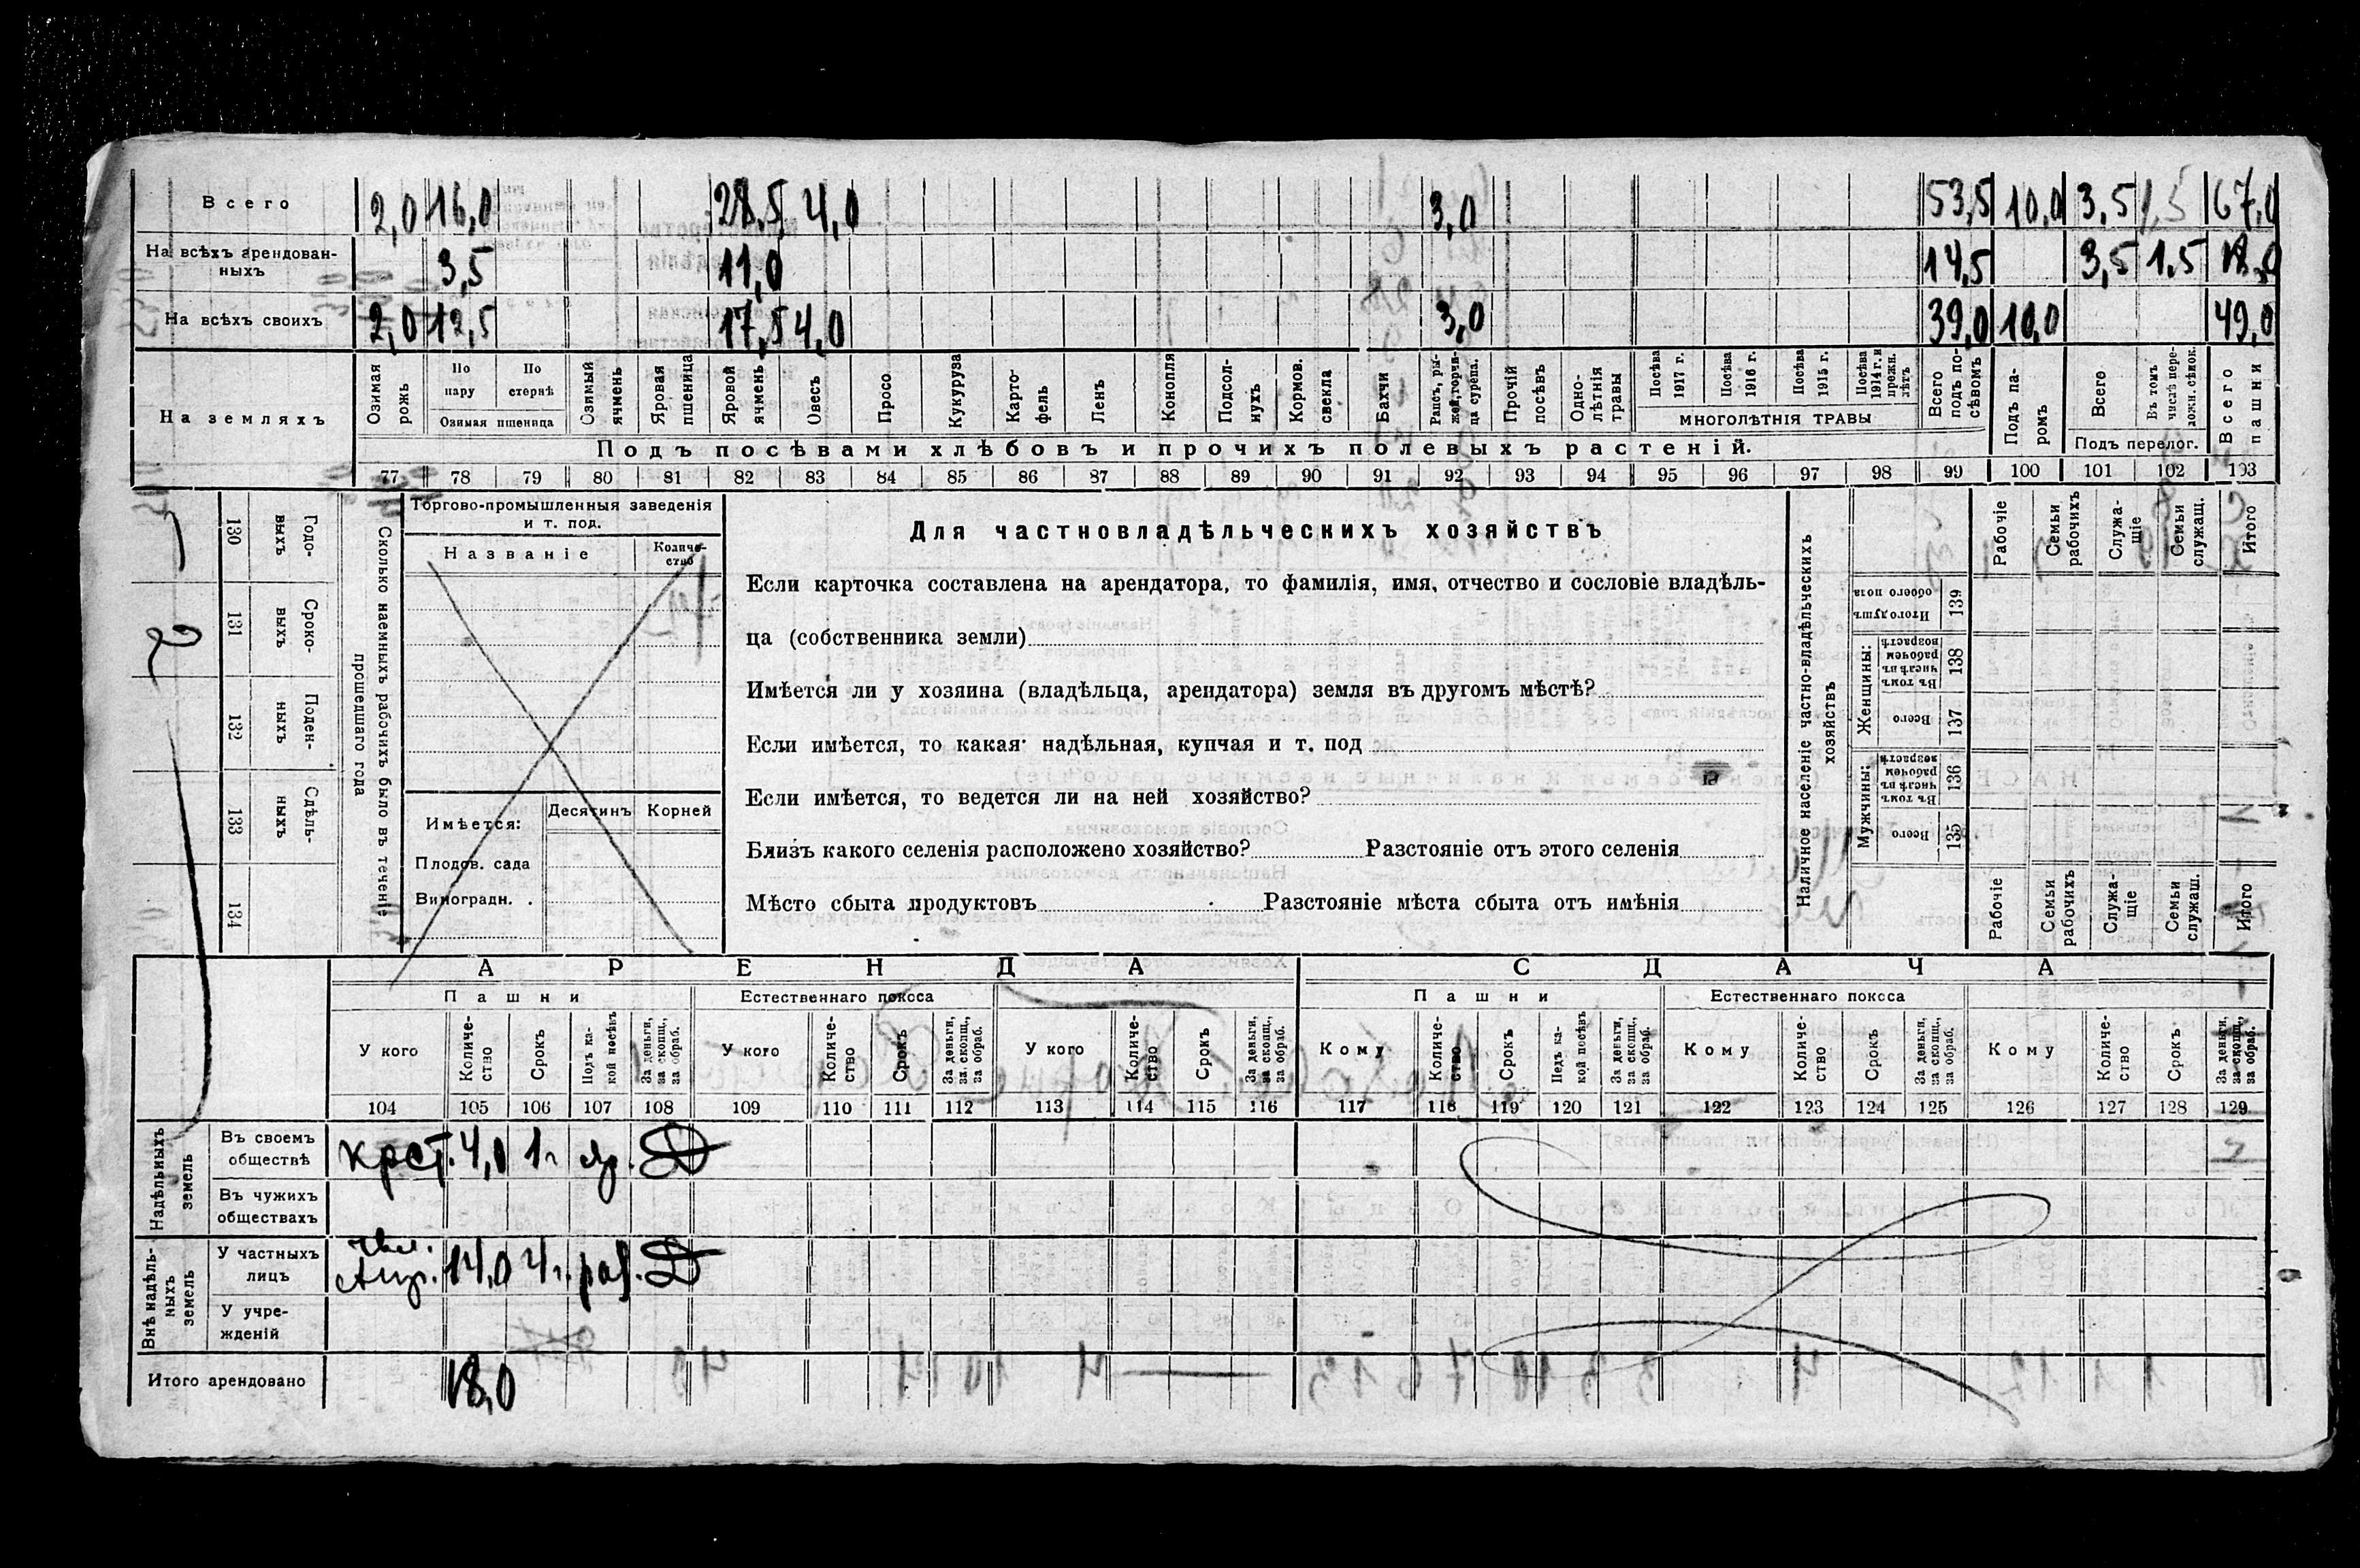 Всего 2,0 16,0 28,5 4,0 3,0 53,5 10,0 3,5 1,5 67,0
На всѣхъ арендован-
ныхъ 3,5 11,0 14,5 3,5 1,5 18,0
На всѣхъ своихъ 2,0 12,5 17,5 4,0 3,0 39,0 10,0 49,0
На земляхъ
Озимая рожь
По пару
По стернѣ
Озимая пшеница
Озимый ячмень
Яровая пшеница
Яровой ячмень
Овесъ
Просо
Кукуруза
Карто-
фель
Ленъ
Конопля
Подсол-
нухъ
Кормов. свекла
Бахчи
Рапсъ, ры-
жей, горчи-
ца сурѣпа.
Прочій посѣвъ
Одно-
лѣтнія травы
Посѣва 1917 г.
Посѣва 1916 г.
Посѣва 1915 г.
Посѣва 1914 г. и прежн. лѣтъ
МНОГОЛѢТНІЯ ТРАВЫ
Всего подъ по-
сѣвомъ
Подъ па-
ромъ
Всего
Въ томъ числѣ пере-
ложн. сѣнок.
Подъ перелог.
Всего пашни
Подъ посѣвами хлѣбовъ и прочихъ полевыхъ растеній.
77 78 79 80 81 82 83 84 85 86 87 88 89 90 91 92 93 94 95 96 97 98 99 100 101 102 103
130 Годо-
выхъ
131 Сроко-
выхъ 2
132 Поден-
ныхъ
133 Сдѣль-
ныхъ
134
Сколько наемныхъ рабочихъ было въ теченіе
прошедшаго года
Торгово-промышленныя заведенія
и т. под.
Названіе
Количе-
ство
Имѣется:
Десятинъ
Корней
Плодов. сада
Виноградн.
Для частновладѣльческихъ хозяйствъ
Если карточка составлена на арендатора, то фамилія, имя, отчество и сословіе владѣль-
ца (собственника земли)
Имѣется ли у хозяина (владѣльца, арендатора) земля въ другомъ мѣстѣ?
Если имѣется, то какая надѣльная, купчая и т. под
Если имѣется, то ведется ли на ней хозяйство?
Близъ какого селенія расположено хозяйство? Разстояніе отъ этого селенія
Мѣсто сбыта продуктовъ Разстояніе мѣста сбыта отъ имѣнія
Наличное населеніе частно-владѣльческихъ
хозяйствъ
Рабочіе
Семьи рабочихъ
Служа-
щіе
Семьи служащ.
Итого
Итого душъ обоего пола 139
Женщины:
Въ томъ числѣ въ рабочемъ возрастѣ 138
Всего 137
Мужчины:
Въ томъ числѣ въ рабочемъ возрастѣ 136
Всего 135
Рабочіе
Семьи рабочихъ
Служа-
щіе
Семьи служащ.
Итого
АРЕНДА СДАЧА
Пашни Естественнаго покоса Пашни Естественнаго покоса
У кого
Количе-
ство
Срокъ
Подъ ка-
кой посѣвъ
За деньги, за скопщ., за обраб.
У кого
Количе-
ство
Срокъ
За деньги, за скопщ., за обраб.
У кого
Количе-
ство
Срокъ
За деньги, за скопщ., за обраб.
Кому
Количе-
ство
Срокъ
Подъ ка-
кой посѣвъ
За деньги, за скопщ., за обраб.
Кому
Количе-
ство
Срокъ
За деньги, за скопщ., за обраб.
Кому
Количе-
ство
Срокъ
За деньги, за скопщ., за обраб.
104 105 106 107 108 109 110 111 112 113 114 115 116 117 118 119 120 121 122 123 124 125 126 127 128 129
Надѣльныхъ
земель
Въ своемъ
обществѣ
крст. 4,0 1 г. Д
Въ чужихъ
обществахъ
Внѣ надѣль-
ныхъ
земель
У частныхъ
лицъ
14,0 4 г. Д
У учре-
жденій
Итого арендовано 18,0